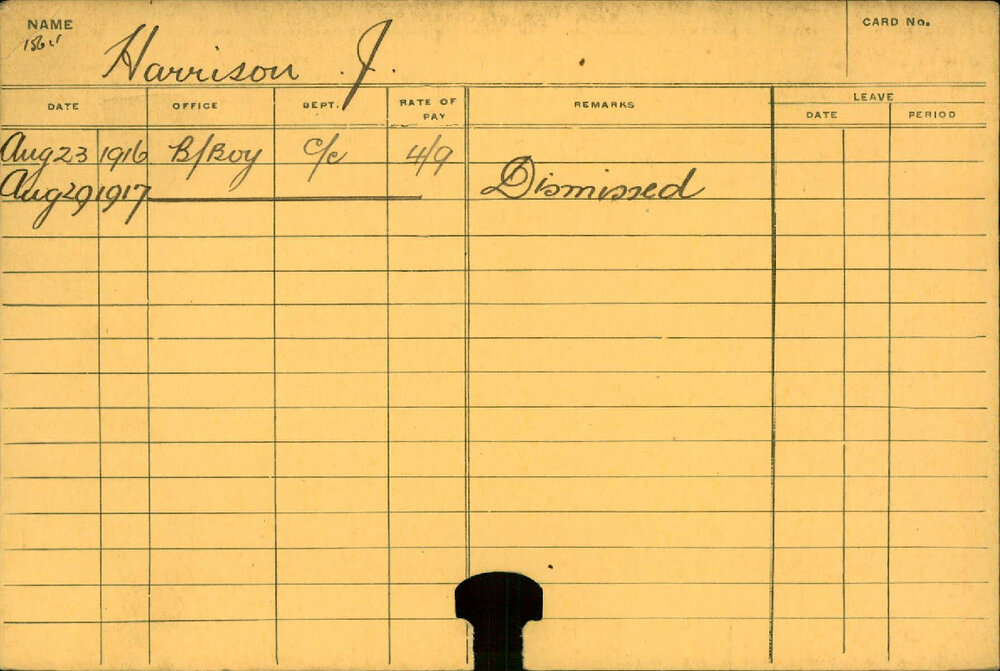 NAME
CARD No.
Harrison J.
DATE OFFICE DEPT. RATE OF PAY REMARKS LEAVE
DATE PERIOD
Aug 23 1916 B/Boy C/c 4/9
Aug 29 1917 Dismissed